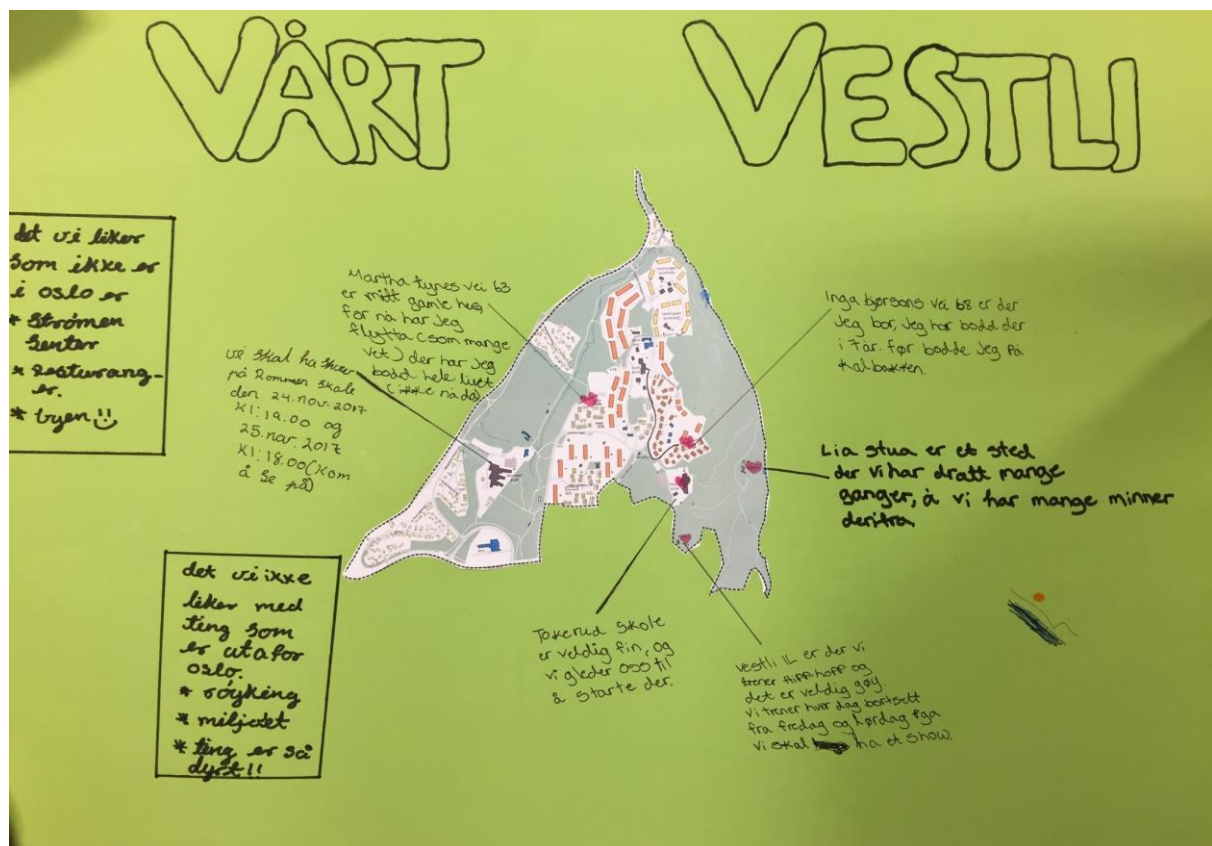 VÅRT VESTLI
det vi liker
som ikke er
i oslo er
* Strömen
Senter
* Resturang-
er.
* byen!!
Martha tynes vei 63
er mitt gamle hus,
for nå har jeg
flytta (som mange
vet) der har jeg
bodd hele livet
(ikke nå da)
vi skal ha show
på Rommen skole
den. 24. nov. 2017
Kl: 19.00 og
25. nov. 2017
Kl: 18.00 (Kom
å se på)
Inga bjørsons vei 68 er der
Jeg bor, Jeg har bodd der
i 7 år. før bodde Jeg på
Kalbakken.
Lia stua er et sted
der vi har dratt mange
ganger, å vi har mange minner
derifra.
det vi ikke
liker med
ting som
er utafor
oslo.
* röyking
* miljøet
* ting er så
dyrt!!
Tokerud skole
er veldig fin, og
vi gleder oss til
å starte der.
vestli IL er der vi
trener hipphopp og
det er veldig gøy.
vi trener hver dag bortsett
fra fredag og lørdag pga
vi skal ha et show.